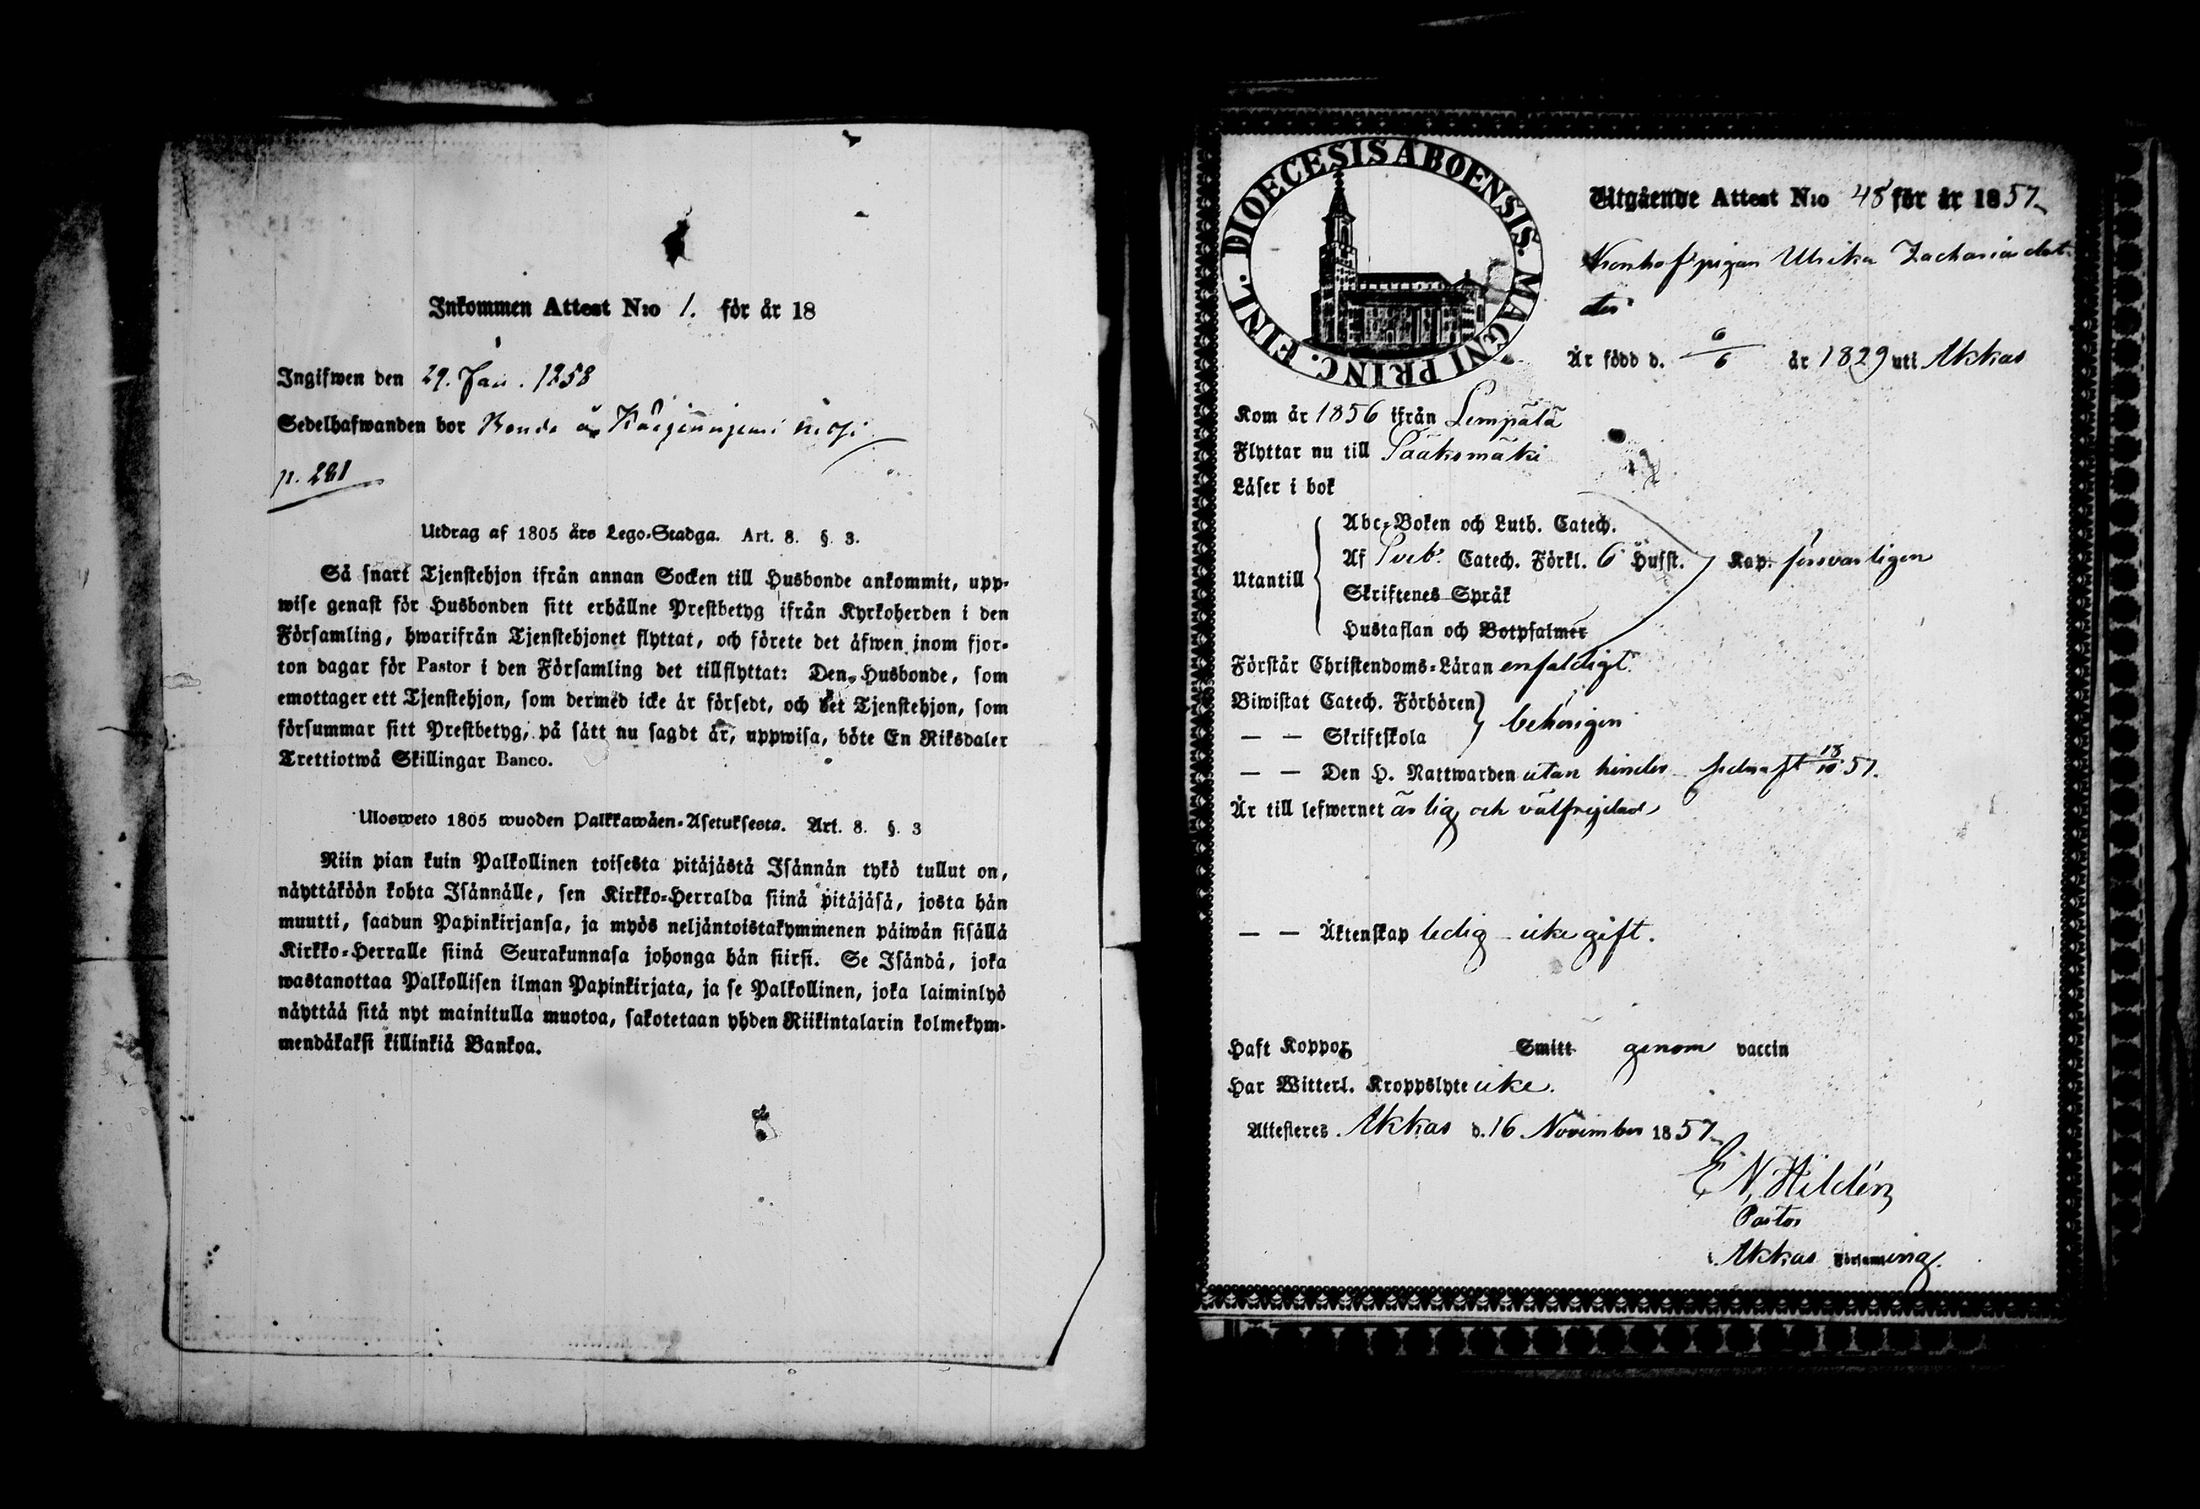 Inkommen Attest N:o 1. för år 18
Ingifwen den 29. Jan. 1858
Sedelhafwanden bor
p. 281
Utdrag af 1805 års Lego-Stadga. Art. 8. §. 3.
Så snart Tjenstehjon ifrån annan Socken till Husbonde ankommit, upp-
wise genast för Husbonden sitt erhållne Prestbetyg ifrån Kyrkoherden i den
Församling, hwarifrån Tjenstehjonet flyttat, och förete det äfwen inom fjor-
ton dagar för Pastor i den Församling det tillflyttat: Den Husbonde, som
emottager ett Tjenstehjon, som dermed icke är försedt, och det Tjenstehjon, som
försummar sitt Prestbetyg, på sätt nu sagdt är, uppwisa, böte En Riksdaler
Trettiotwå Skillingar Banco.
Ulosweto 1805 wuoden Palkkawäen-Asetuksesta. Art. 8. §. 3
Niin pian kuin Palkollinen toisesta pitäjästä Isännän tykö tullut on,
näyttäköön kohta Isännälle, sen Kirkko-Herralda siinä pitäjäsä, josta hän
muutti, saadun Papinkirjansa, ja myös neljäntoistakymmenen päiwän sisällä
Kirkko-Herralle siinä Seurakunnasa johonga hän siirsi. Se Isändä, joka
wastanottaa Palkollisen ilman Papinkirjata, ja se Palkollinen, joka laiminlyö
näyttää sitä nyt mainitulla muotoa, sakotetaan yhden Riikintalarin kolmekym-
mendäkaksi killinkiä Bankoa.
DIOECESIS ABOENSIS. MAGNI PRINC. FINL.
Utgående Attest N:o 48 för år 1857
Ulrika Zachariasdot-
ter
Är född d. 6/6 år 1829 uti Akkas
Kom år 1856 ifrån Lempälä
Flyttar nu till Sääksmäki
Läser i bok
Utantill
Abc-Boken och Luth. Catech.
Af Sveb. Catech. Förkl. 6 Hufst. Kap. försvarligen
Skriftenes Språk
Hustaflan och Botpsalmer
Förstår Christendoms-Läran enfaldigt.
Biwistat Catech. Förhören
behörigen
— — Skriftskola
— — Den H. Nattwarden utan hinder sednast 18/10 57.
Är till lefwernet ärlig och välfrejdad
— — Äktenskap ledig icke gift.
Haft Koppor Smitt genom vaccin
Har Witterl. Kroppslyte icke.
Attesteras. Akkas d. 16 November 1857
E N. Hildén
Pastor
i Akkas Församling.